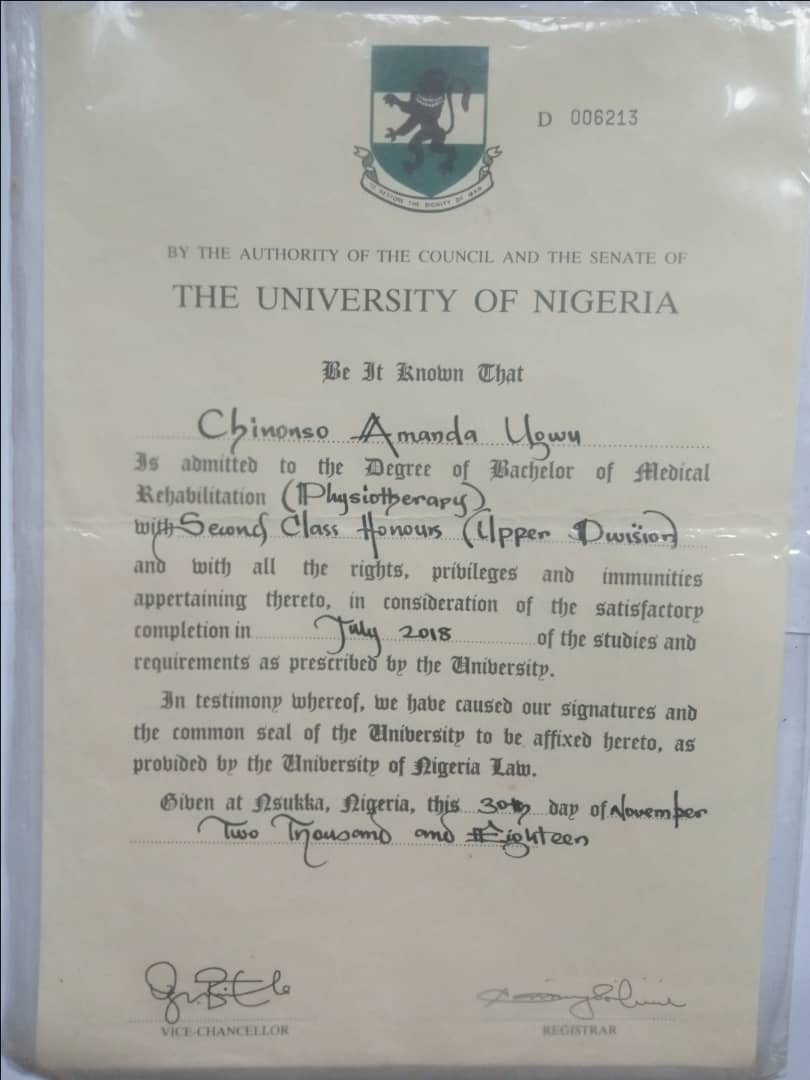 D 006213
TO RESTORE THE DIGNITY OF MAN
BY THE AUTHORITY OF THE COUNCIL AND THE SENATE OF
THE UNIVERSITY OF NIGERIA
Be It Known That
Chinonso Amanda Ugwu
Is admitted to the Degree of Bachelor of Medical
Rehabilitation (Physiotherapy)
with Second Class Honours (Upper Division)
and with all the rights, privileges and immunities
appertaining thereto, in consideration of the satisfactory
completion in July 2018 of the studies and
requirements as prescribed by the University.
In testimony whereof, we have caused our signatures and
the common seal of the University to be affixed hereto, as
provided by the University of Nigeria Law.
Given at Nsukka, Nigeria, this 30th day of November
Two Thousand and Eighteen
VICE-CHANCELLOR
REGISTRAR